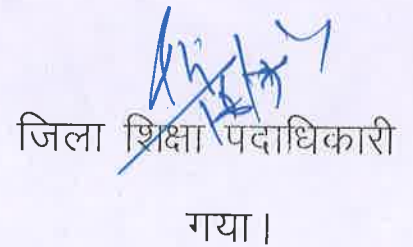 जिला शिक्षा पदाधिकारी
गया।